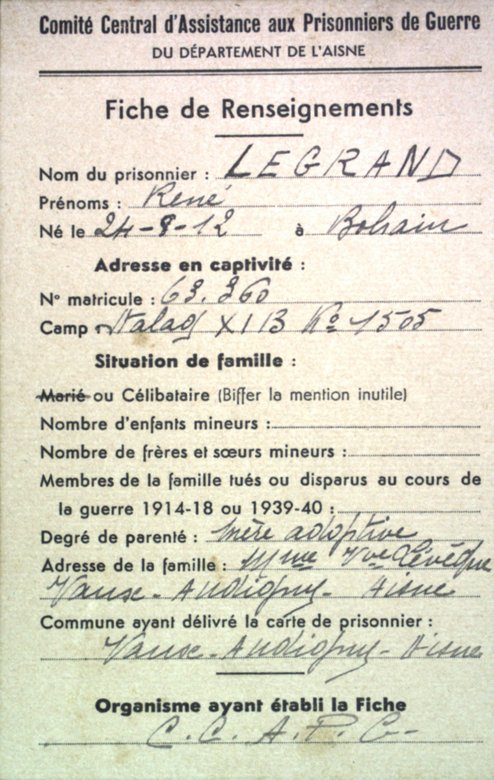 Comité Central d'Assistance aux Prisonniers de Guerre
DU DÉPARTEMENT DE L'AISNE
Fiche de Renseignements
Nom du prisonnier : LEGRAND
Prénoms : René
Né le 24-8-12 à Bohain
Adresse en captivité :
N° matricule : 63.360
Camp Stalag XIIB Ko 1505
Situation de famille :
Marié ou Célibataire (Biffer la mention inutile)
Nombre d'enfants mineurs :
Nombre de frères et sœurs mineurs :
Membres de la famille tués ou disparus au cours de
la guerre 1914-18 ou 1939-40 :
Degré de parenté : Mère adoptive
Adresse de la famille : Mme Vve Lévêque
Vaux-Andigny- Aisne
Commune ayant délivré la carte de prisonnier :
Vaux-Andigny- Aisne
Organisme ayant établi la Fiche
C. C. A. P. G-